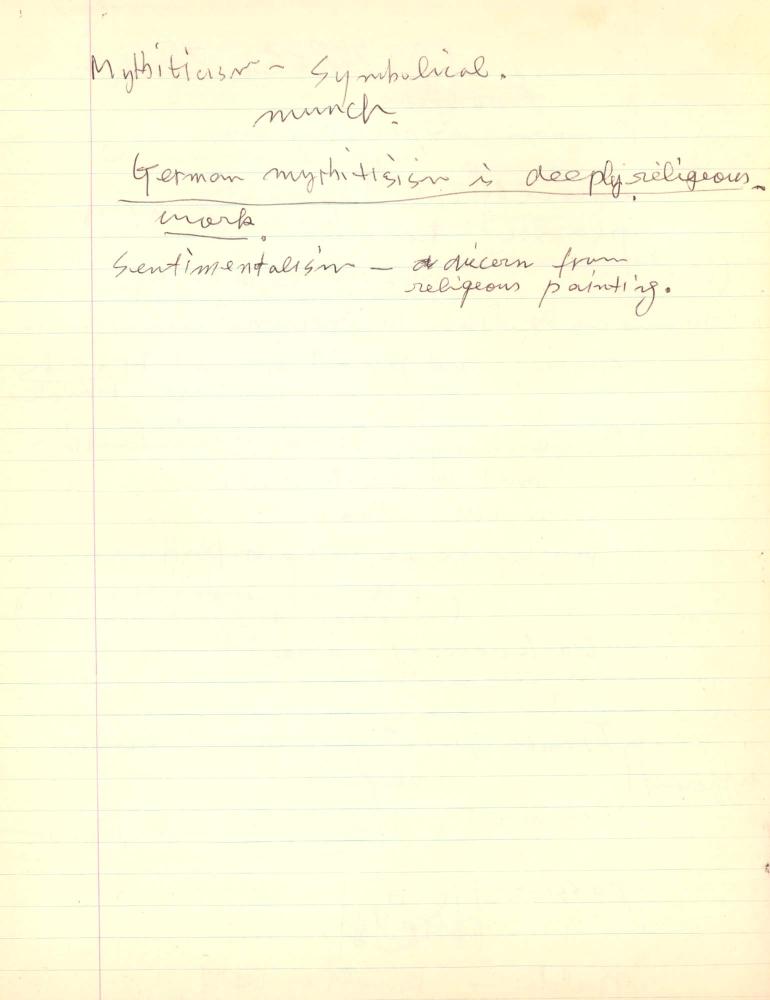 Mythiticism - Symbolical.
munch.
German mythitisism is deeply religeous
work.
Sentimentalism - dicern from
religeous painting.